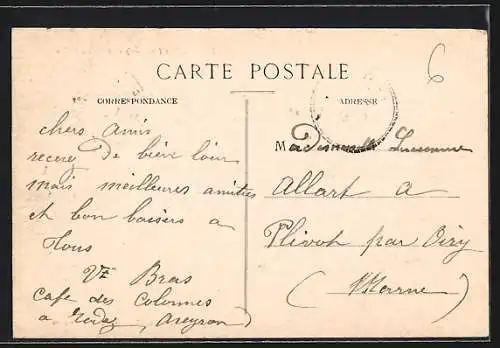 6
CARTE POSTALE
CORRESPONDANCE
ADRESSE
chers amis
recevez De bien loin
mais meilleures amities
et bon baisers a
Tous
Vve Bras
Cafe des Colonnes
a Rodez, Aveyron)
Mademoiselle Lucienne
Allart a
Plivot par Oiry
(Marne)